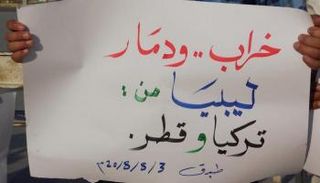 خراب..ودمار
ليبيا من:
تركيا و قطر.
طبرق 2015/5/3م